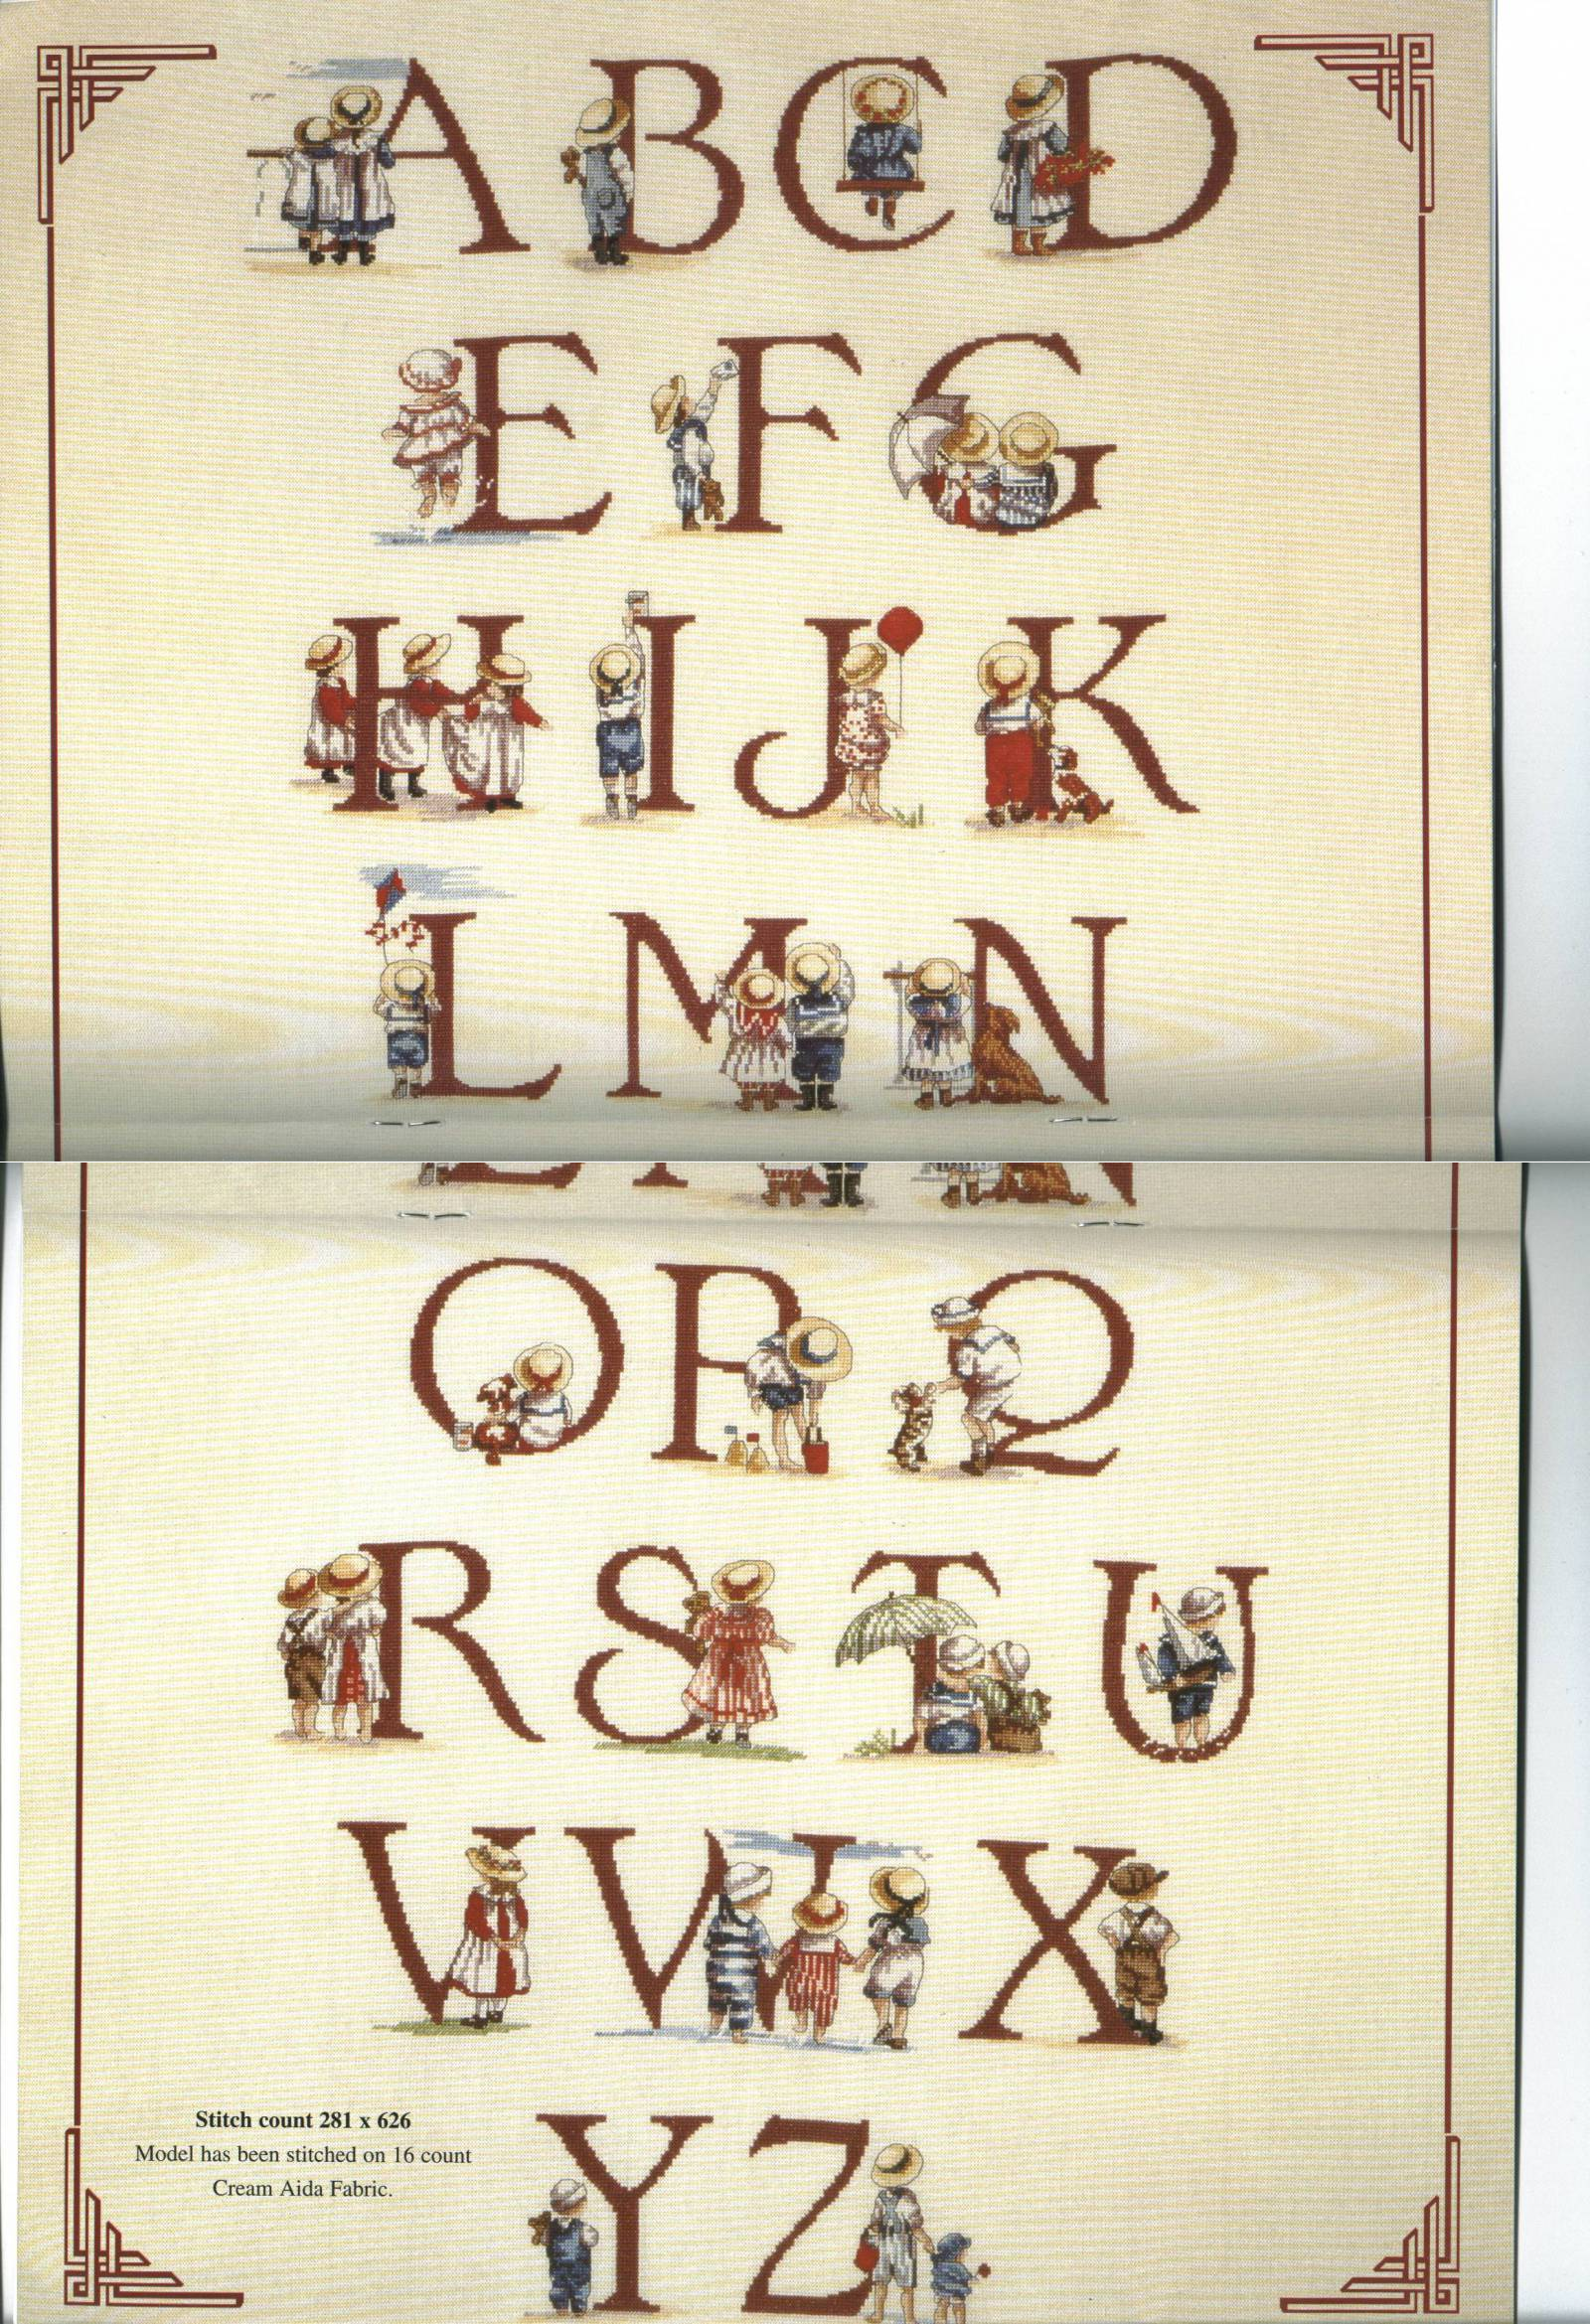 A B C D
E F G
H I J K
L M N
O P Q
R S T U
V W X
Stitch count 281 x 626
Model has been stitched on 16 count
Cream Aida Fabric.
Y Z